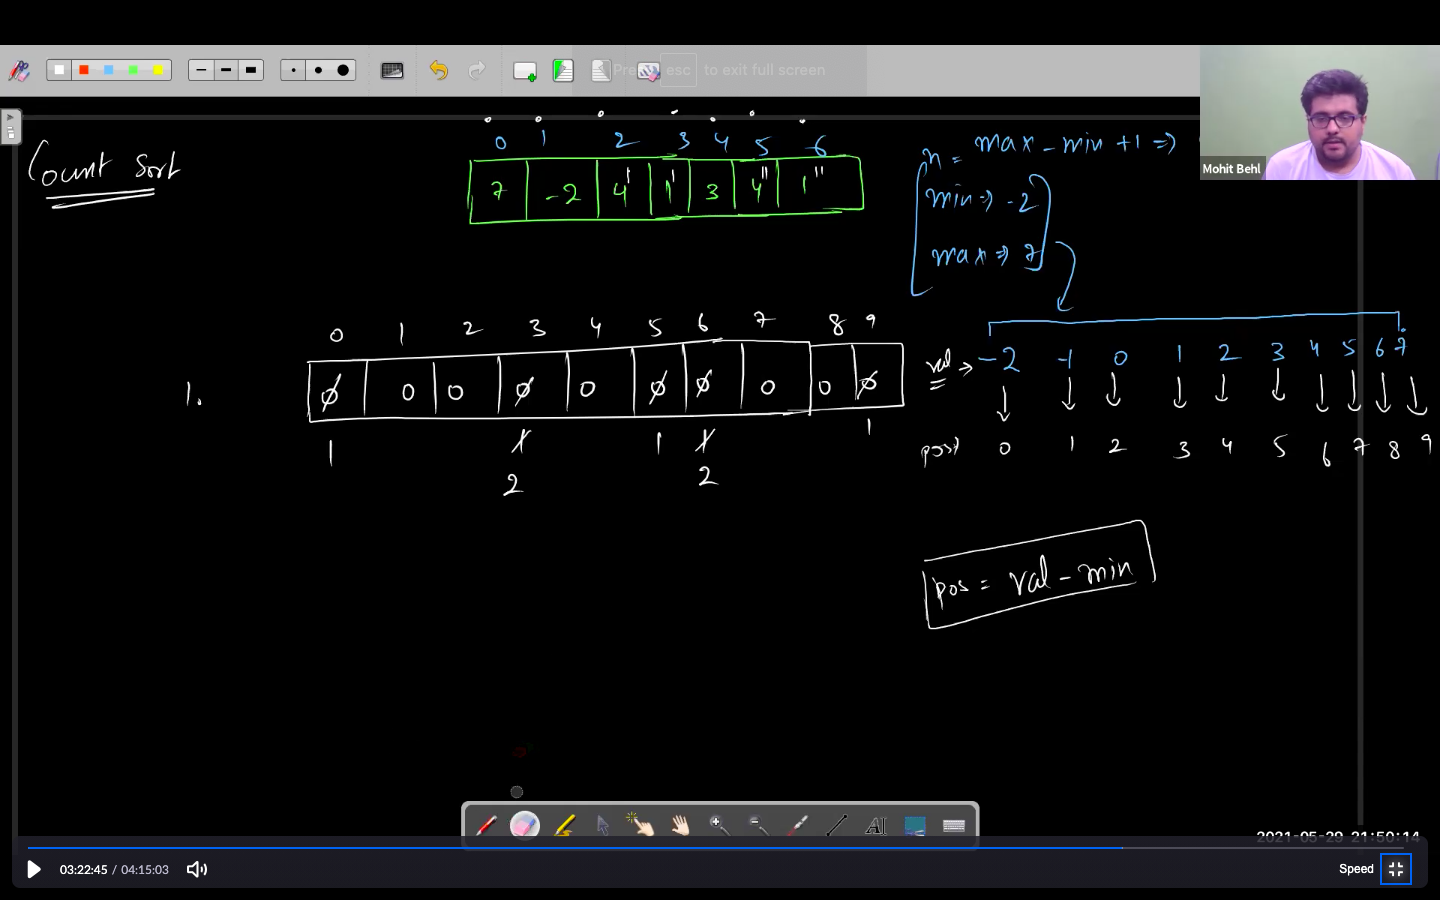 Press esc to exit full screen
Count Sort
0 1 2 3 4 5 6
7 -2 4' 1' 3 4'' 1''
n = max - min + 1 =>
min => -2
max => 7
Mohit Behl
0 1 2 3 4 5 6 7 8 9
1. 0 0 0 0 0 0 0 0 0 0
1 1 1 1 1
2 2
val -> -2 -1 0 1 2 3 4 5 6 7
0 1 2 3 4 5 6 7 8 9
pos = val - min
AI
2021-05-29 21:50:14
03:22:45 / 04:15:03
Speed